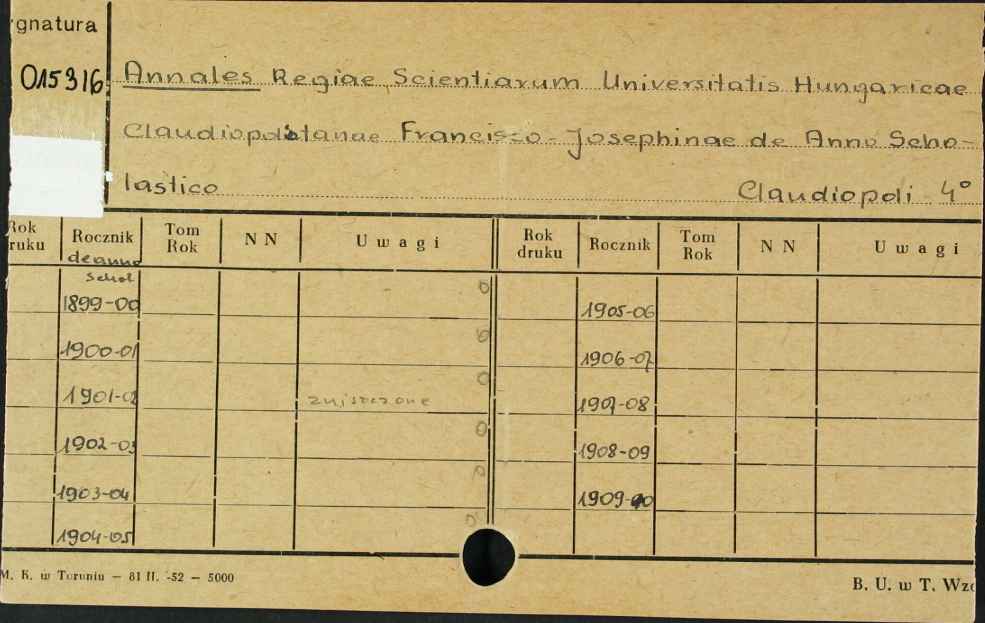 ygnatura
015316 Annales Regiae Scientiarum Universitatis Hungaricae
Claudiopolitanae Francisco-Josephinae de Anno Scho-
lastico Claudiopoli 4°
Rok druku Rocznik Tom Rok N N Uwagi Rok druku Rocznik Tom Rok N N Uwagi
de anno
schol
1899-00 1905-06
1900-01 1906-07
1901-02 zniszczone 1907-08
1902-03 1908-09
1903-04 1909-10
1904-05
M. K. w Toruniu — 81 II. -52 — 5000 B. U. w T. Wzó